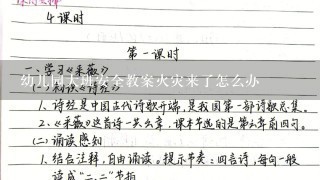 4课时
第一课时
一、学习《采薇》
幼儿园大班安全教案火灾来了怎么办
1、诗经是中国古代诗歌开端,是我国第一部诗歌总集。
2、《采薇》这首诗一共六章,课本节选的是第六章前四句。
(二)诵读感知
1、结合注释,自由诵读。提示节奏:四言诗,每句一般
读成“二、二”节拍